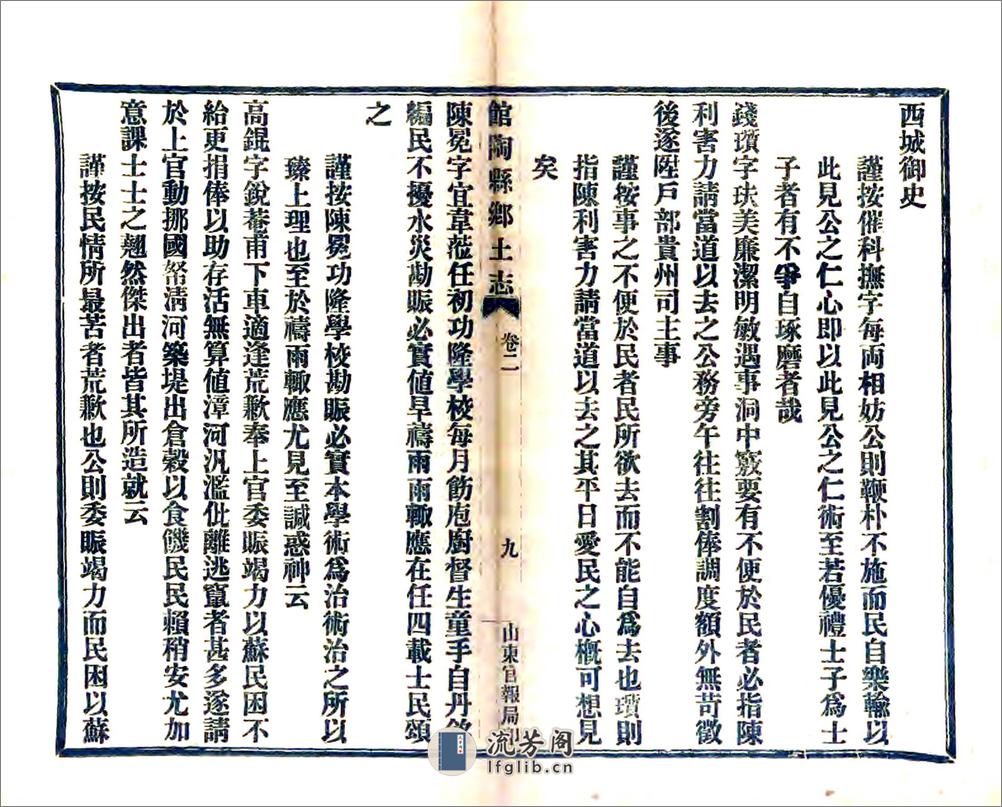 西城御史
謹按催科撫字每両相妨公則鞭朴不施而民自樂輸以
此見公之仁心即以此見公之仁術至若優禮士子爲士
子者有不爭自琢磨者哉
錢瓚字玞美廉潔明敏遇事洞中竅要有不便於民者必指陳
利害力請當道以去之公務旁午往往割俸調度額外無苛徵
後遂陞戶部貴州司主事
謹按事之不便於民者民所欲去而不能自爲去也瓚則
指陳利害力請當道以去之其平日愛民之心槪可想見
矣
館陶縣鄉土志
卷二
九
山東官報局
陳冕字宜韋蒞任初功隆學校每月飭庖廚督生童手自丹
編民不擾水災勘賑必實値旱禱雨雨輙應在任四載士民頌
之
謹按陳冕功隆學校勘賑必實本學術爲治術治之所以
臻上理也至於禱雨輙應尤見至諴惑神云
高錕字銳菴甫下車適逢荒歉奉上官委賑竭力以蘇民困不
給更捐俸以助存活無算値漳河汎濫仳離逃竄者甚多遂請
於上官動挪國帑淸河築堤出倉榖以食饑民民賴稍安尤加
意課士士之翹然傑出者皆其所造就云
謹按民情所最苦者荒歉也公則委賑竭力而民困以蘇
流芳阁
lfglib.cn